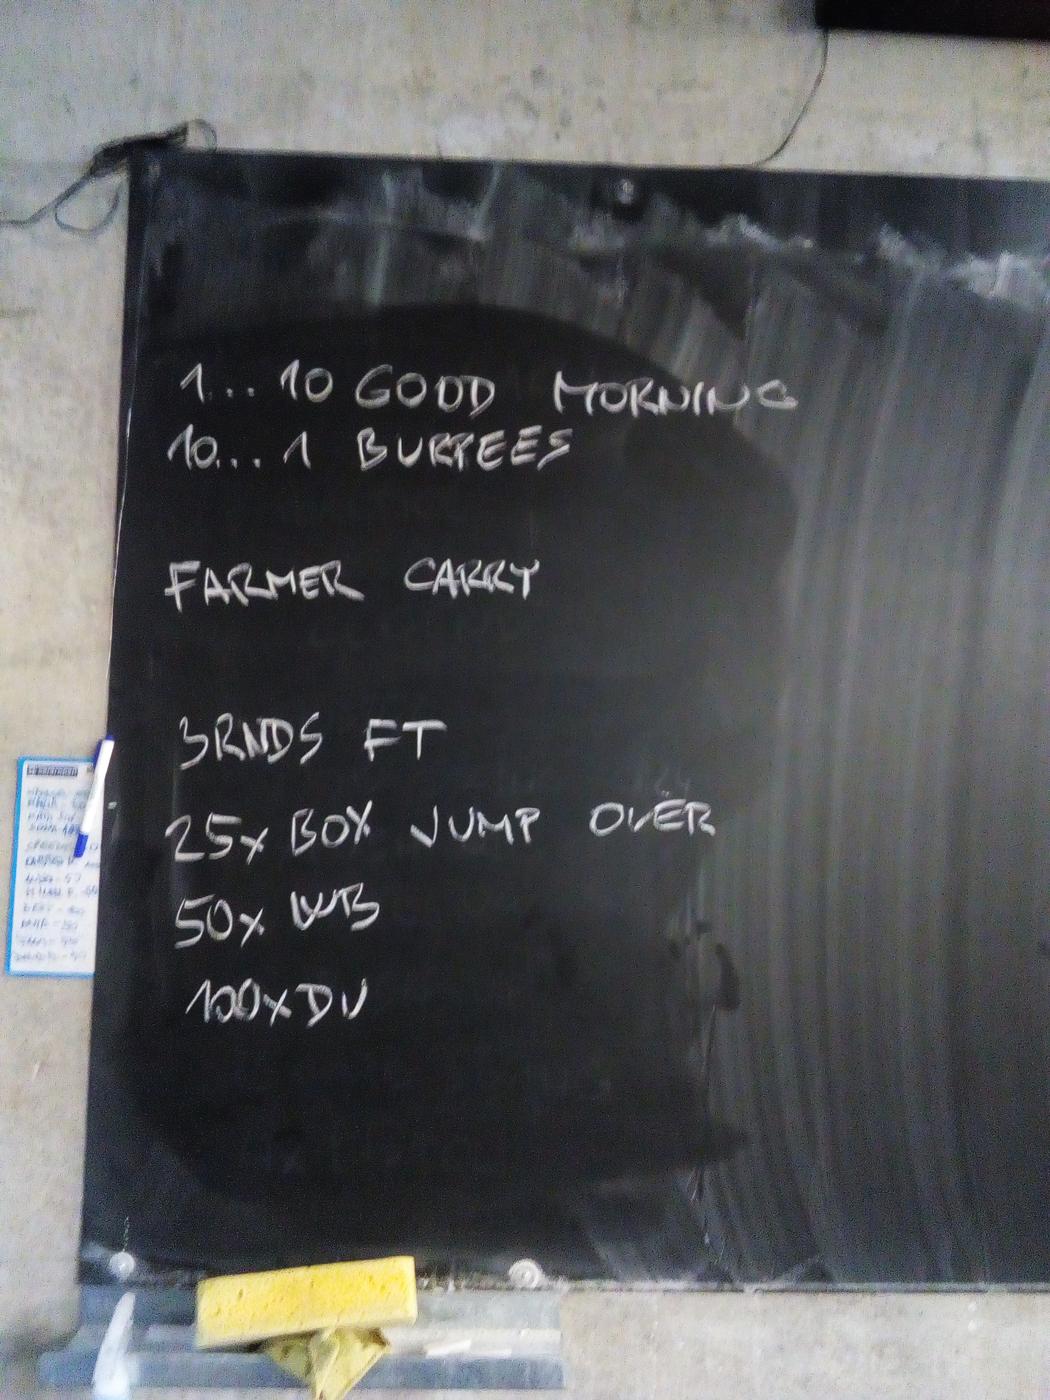 1... 10 GOOD MORNING
10... 1 BURPEES
FARMER CARRY
3RNDS FT
25x BOX JUMP OVER
50x WB
100x DU